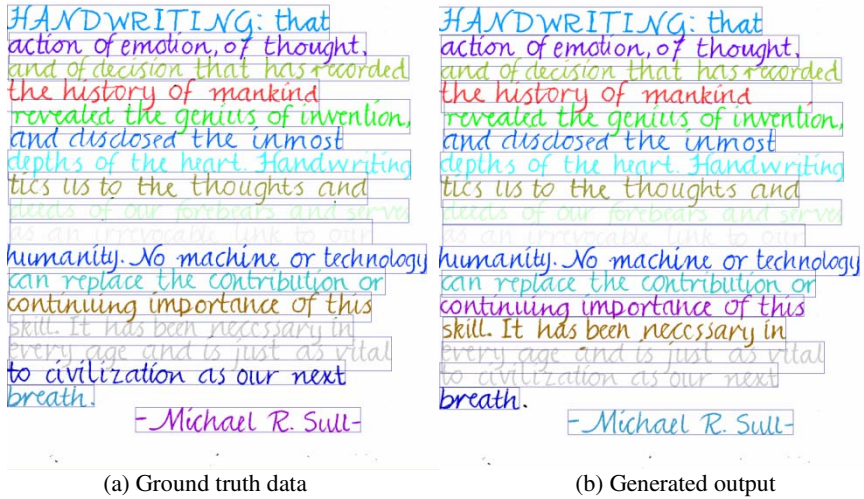 HANDWRITING: that
action of emotion, of thought,
and of decision that has recorded
the history of mankind
revealed the genius of invention,
and disclosed the inmost
depths of the heart. Handwriting
ties us to the thoughts and
deeds of our forebears and serves
as an irrevocable link to our
humanity. No machine or technology
can replace the contribution or
continuing importance of this
skill. It has been necessary in
every age and is just as vital
to civilization as our next
breath.
-Michael R. Sull-
(a) Ground truth data
HANDWRITING: that
action of emotion, of thought,
and of decision that has recorded
the history of mankind
revealed the genius of invention,
and disclosed the inmost
depths of the heart. Handwriting
ties us to the thoughts and
deeds of our forebears and serves
as an irrevocable link to our
humanity. No machine or technology
can replace the contribution or
continuing importance of this
skill. It has been necessary in
every age and is just as vital
to civilization as our next
breath.
-Michael R. Sull-
(b) Generated output